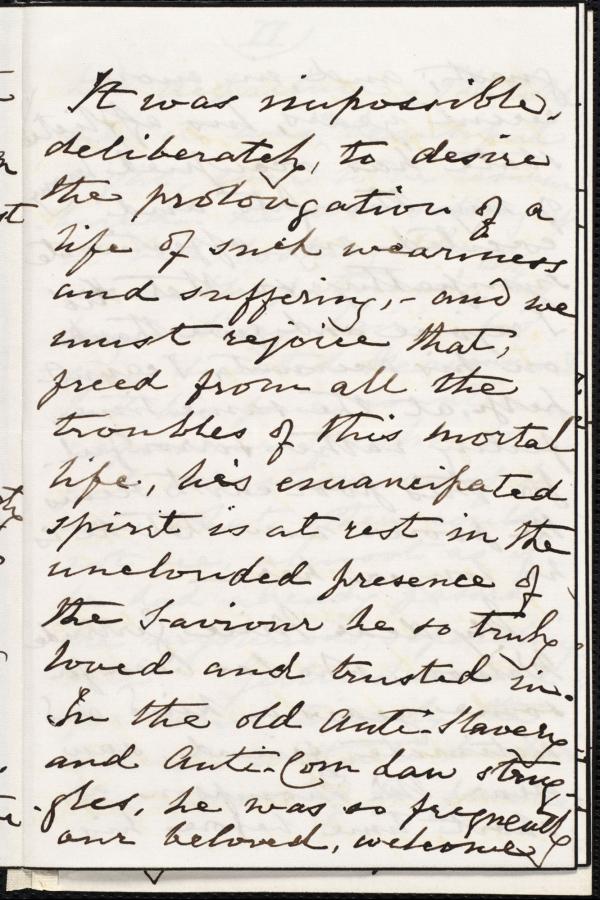 It was impossible,
deliberately, to desire
the prolongation of a
life of such weariness
and suffering, - and we
must rejoice that,
freed from all the
troubles of this mortal
life, his emancipated
spirit is at rest in the
unclouded presence of
the Saviour he so truly
loved and trusted in.
In the old Anti-Slavery
and Anti-Corn Law strug-
-gles, he was so frequently
our beloved, welcome